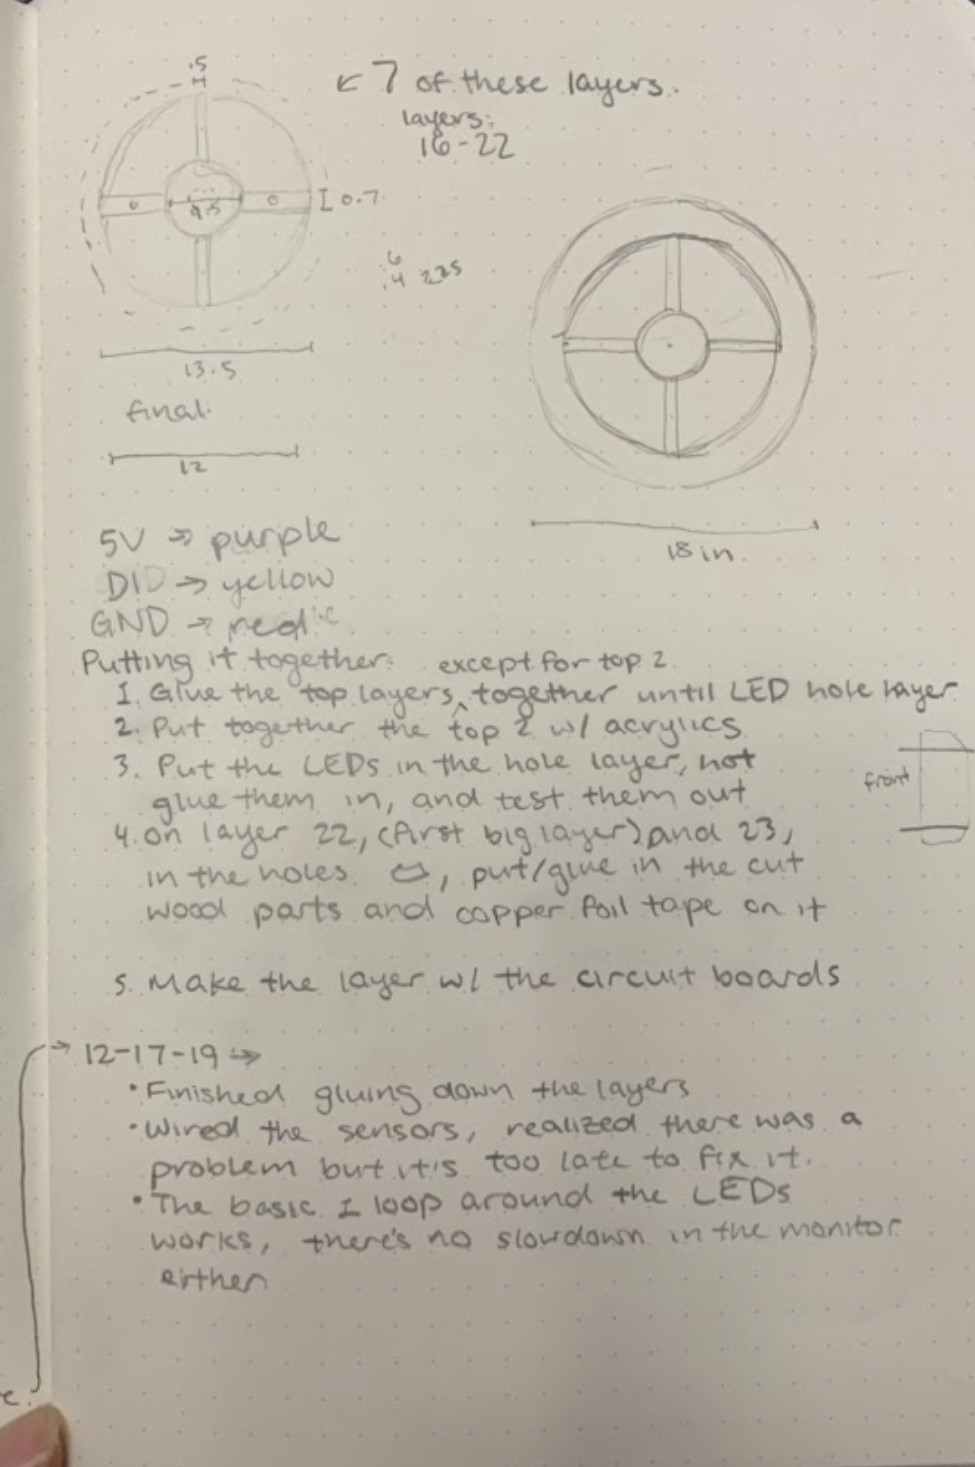 .5
← 7 of these layers.
layers:
16-22
I 0.7
13.5
final:
12
18 in
5V → purple
DID → yellow
GND → red
Putting it together: except for top 2
1. Glue the top layers ^ together until LED hole layer
2. Put together the top 2 w/ acrylics
3. Put the LEDs in the hole layer, not
glue them in, and test them out
front
4. on layer 22, (first big layer) and 23,
in the holes , put/glue in the cut
wood parts and copper foil tape on it
5. Make the layer w/ the circuit boards
→ 12-17-19 →
• Finished gluing down the layers
• Wired the sensors, realized there was a
problem but it's too late to fix it.
• The basic 1 loop around the LEDs
works, there's no slowdown in the monitor
either